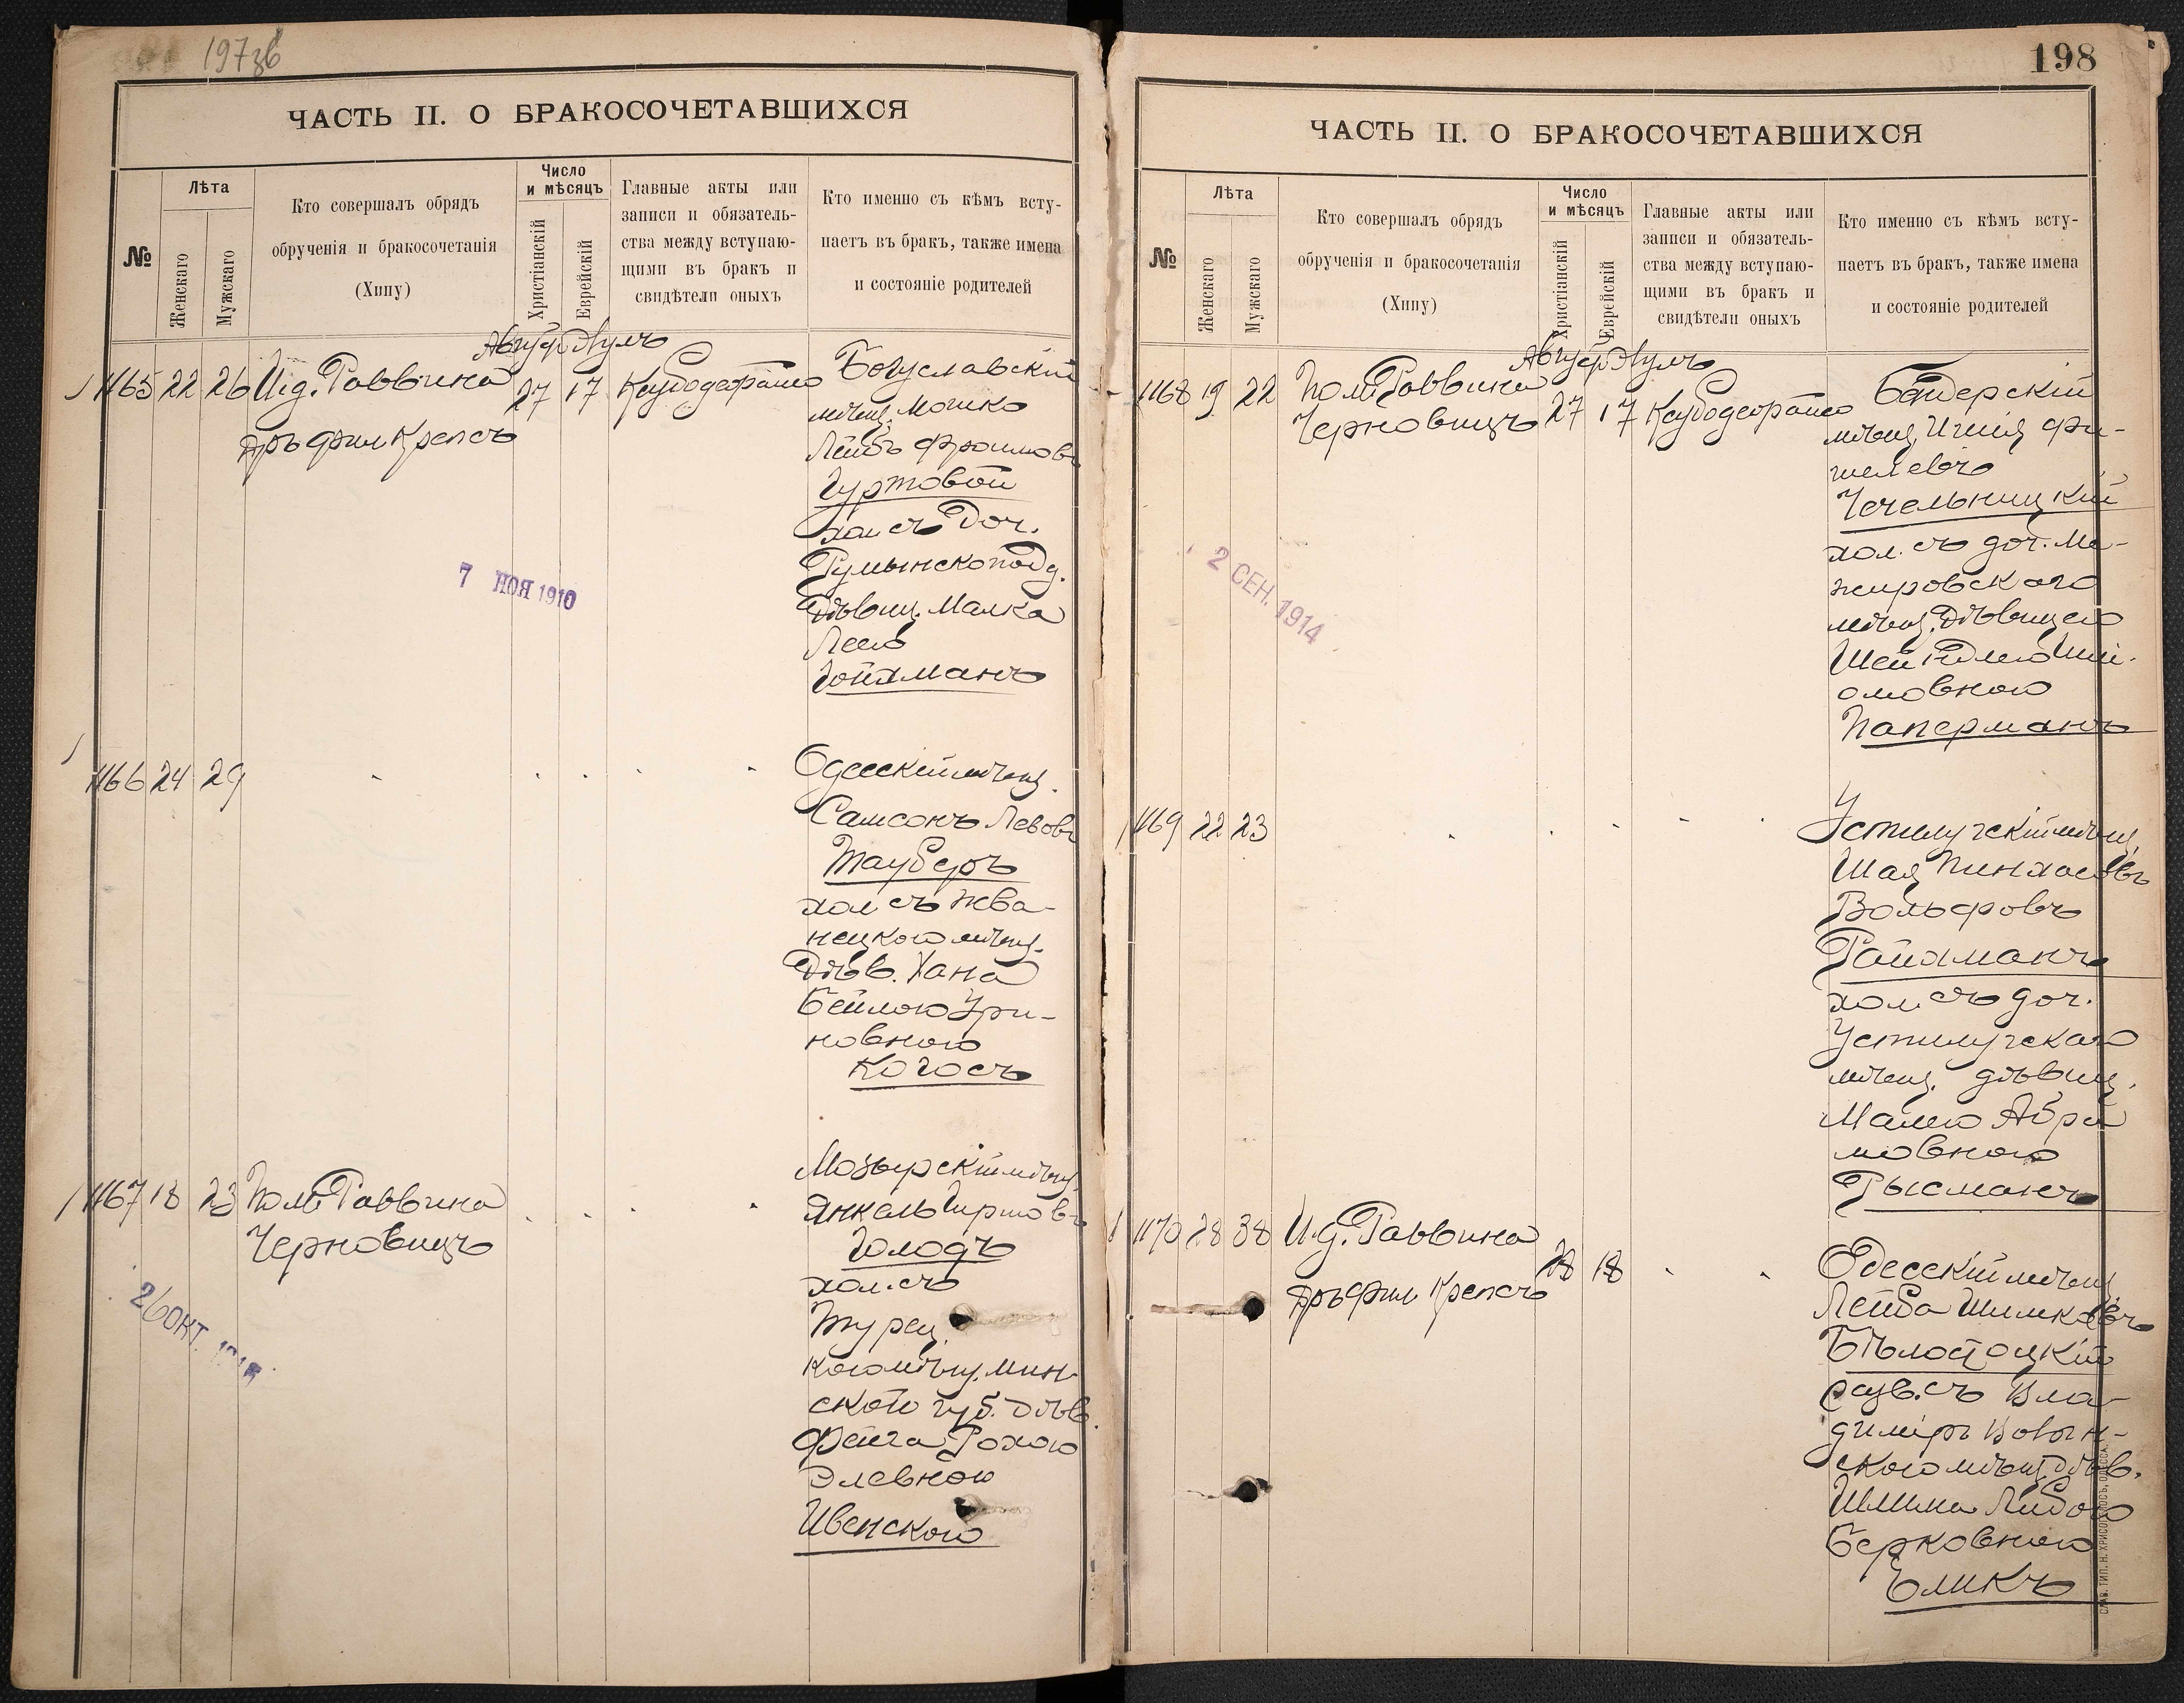 197зв
ЧАСТЬ II. О БРАКОСОЧЕТАВШИХСЯ
№
Лѣта
Женскаго
Мужскаго
Кто совершалъ обрядъ
обрученія и бракосочетанія
(Хипу)
Число
и мѣсяцъ
Христіанскій
Еврейскій
Главные акты или
записи и обязатель-
ства между вступаю-
щими въ бракъ и
свидѣтели оныхъ
Кто именно съ кѣмъ всту-
паетъ въ бракъ, также имена
и состояніе родителей
Август Элулъ
1165 22 26 И.д. Раввина 27 17
Др. фил. Крепсъ
Богуславскій
мѣщ. Мошко
Лейбъ Фроимовъ
Гуртовой
хол. съ доч.
Румынскопод.
Дѣвиц. Малка
Лею
Гойхманъ
7 НОЯ 1910
1166 24 29
Одесскій мѣщ.
Самсонъ Левовъ
Тауберъ
хол. съ Жва-
нецкого мѣщ.
Дѣв. Хана
Бейлою Ури-
новною
Когосъ
1167 18 23 Пом. Раввина
Черновицъ
Мозырскій мѣщ.
Янкель Гиршовъ
Голодъ
хол. съ
Турец.
кого мѣщ. Мин-
ской губ. Дѣв.
Фейга Рохою
Элевною
Ивенскою
26 ОКТ.
198
ЧАСТЬ II. О БРАКОСОЧЕТАВШИХСЯ
№
Лѣта
Женскаго
Мужскаго
Кто совершалъ обрядъ
обрученія и бракосочетанія
(Хипу)
Число
и мѣсяцъ
Христіанскій
Еврейскій
Главные акты или
записи и обязатель-
ства между вступаю-
щими въ бракъ и
свидѣтели оныхъ
Кто именно съ кѣмъ всту-
паетъ въ бракъ, также имена
и состояніе родителей
Август Элулъ
1168 19 22 Пом. Раввина 27 17
Черновицъ
Бендерскій
мѣщ. Фи-
шелевъ
Чечельницкій
хол. съ доч. Ме-
жировского
мѣщ. Дѣвицею
Шейндлею
омовною
Паперманъ
2 СЕН. 1914
1169 22 23
Устилугскій мѣщ.
Шая Пинхасовъ
Вольфовъ
Ройхманъ
хол. съ доч.
Устилугскаго
мѣщ. дѣвиц.
Малею Абра
мовною
Рысманъ
1170 28 38 И.д. Раввина 28 18
Др. фил. Крепсъ
Одесскій мѣщ.
Лейба Шимковъ
Бѣлостоцкій
разв. съ Вла-
диміръ Волын-
ского мѣщ. дѣв.
Либою
Берковною
Еликъ
СЛАВ. ТИП. Н. ХРИСОГЕЛОСЪ, ОДЕССА.